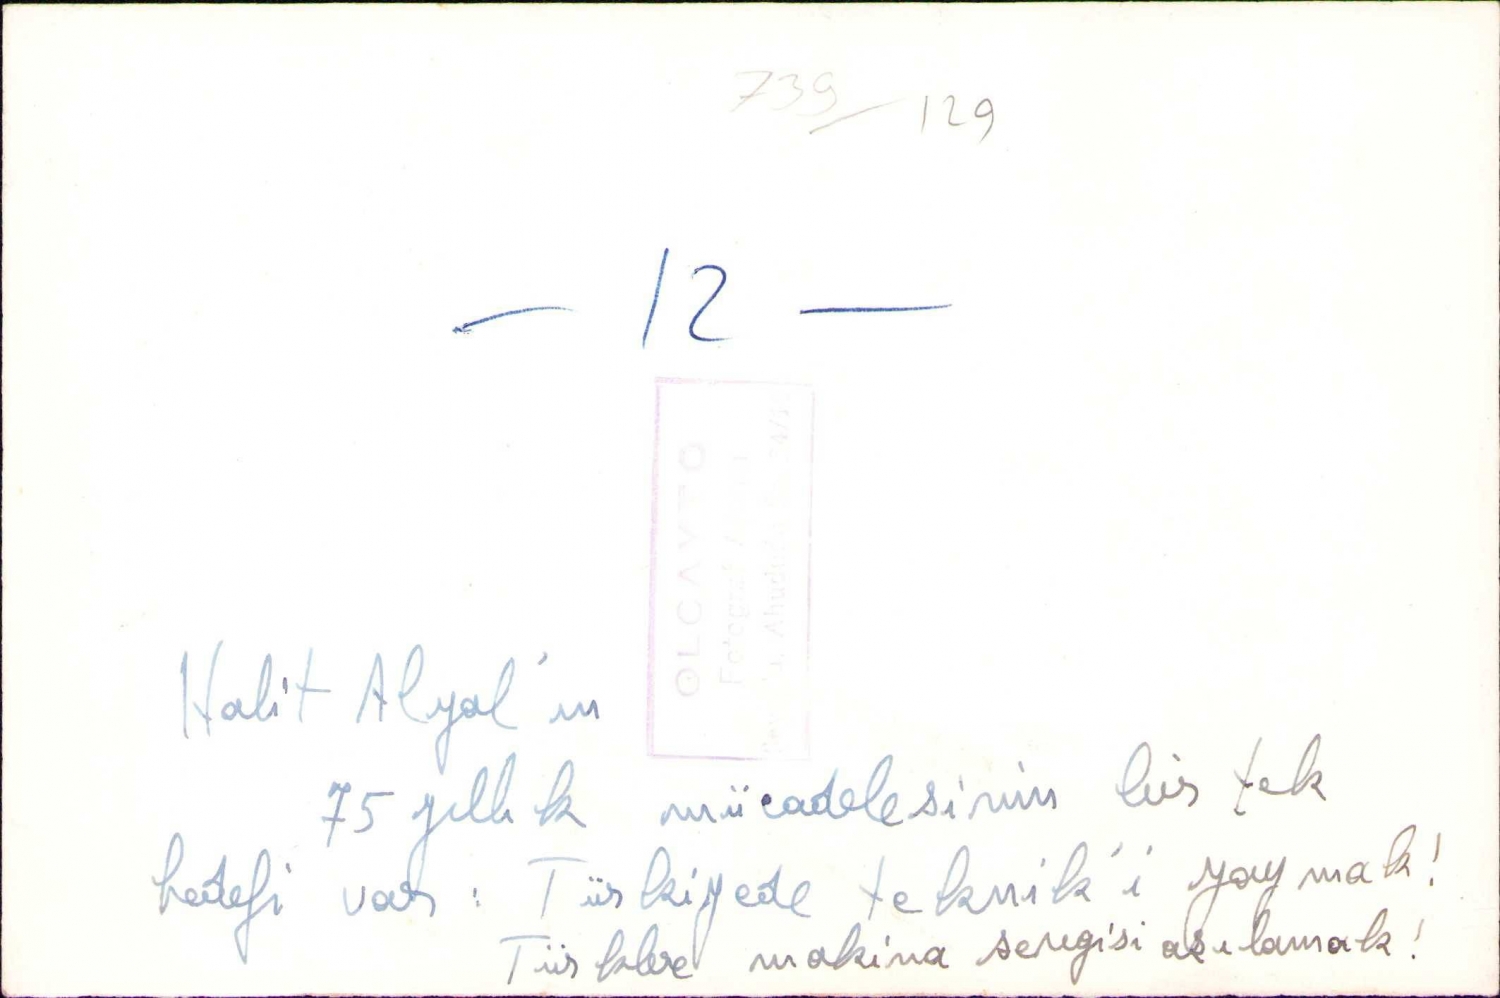 739/129
— 12 —
OLCAYTO
Halit Alyal'ın
75 yıllık mücadelesinin bir tek
hedefi var: Türkiyede teknik'i yaymak!
Türklere makina sevgisi aşılamak!